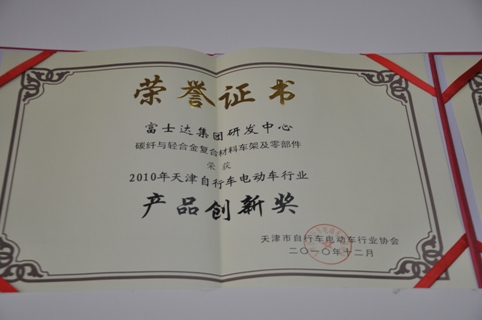 荣誉证书
富士达集团研发中心
碳纤与轻合金复合材料车架及零部件
荣获
2010年天津自行车电动车行业
产品创新奖
天津市自行车电动车行业协会
二〇一〇年十二月